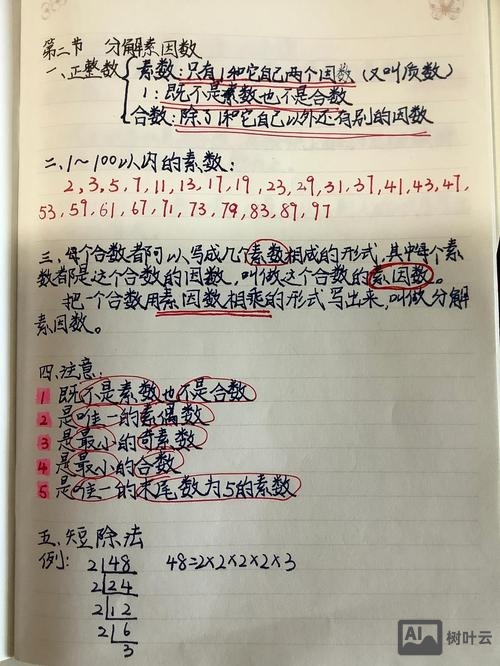 第二节 分解素因数
一、正整数
素数:只有1和它自己两个因数(又叫质数)
1:既不是素数也不是合数
合数:除了1和它自己以外还有别的因数
二、1~100以内的素数:
2,3,5,7,11,13,17,19,23,29,31,37,41,43,47,
53,59,61,67,71,73,79,83,89,97
三、每个合数都可以写成几个素数相成的形式,其中每个素
数都是这个合数的因数,叫做这个合数的素因数。
把一个合数用素因数相乘的形式写出来,叫做分解
素因数。
四、注意:
1 既不是素数也不是合数
2 是唯一的素偶数
3 是最小的奇素数
4 是最小的合数
5 是唯一的末尾数为5的素数
五、短除法
例: 2 48 48=2×2×2×2×3
2 24
2 12
2 6
3
AI 树叶云